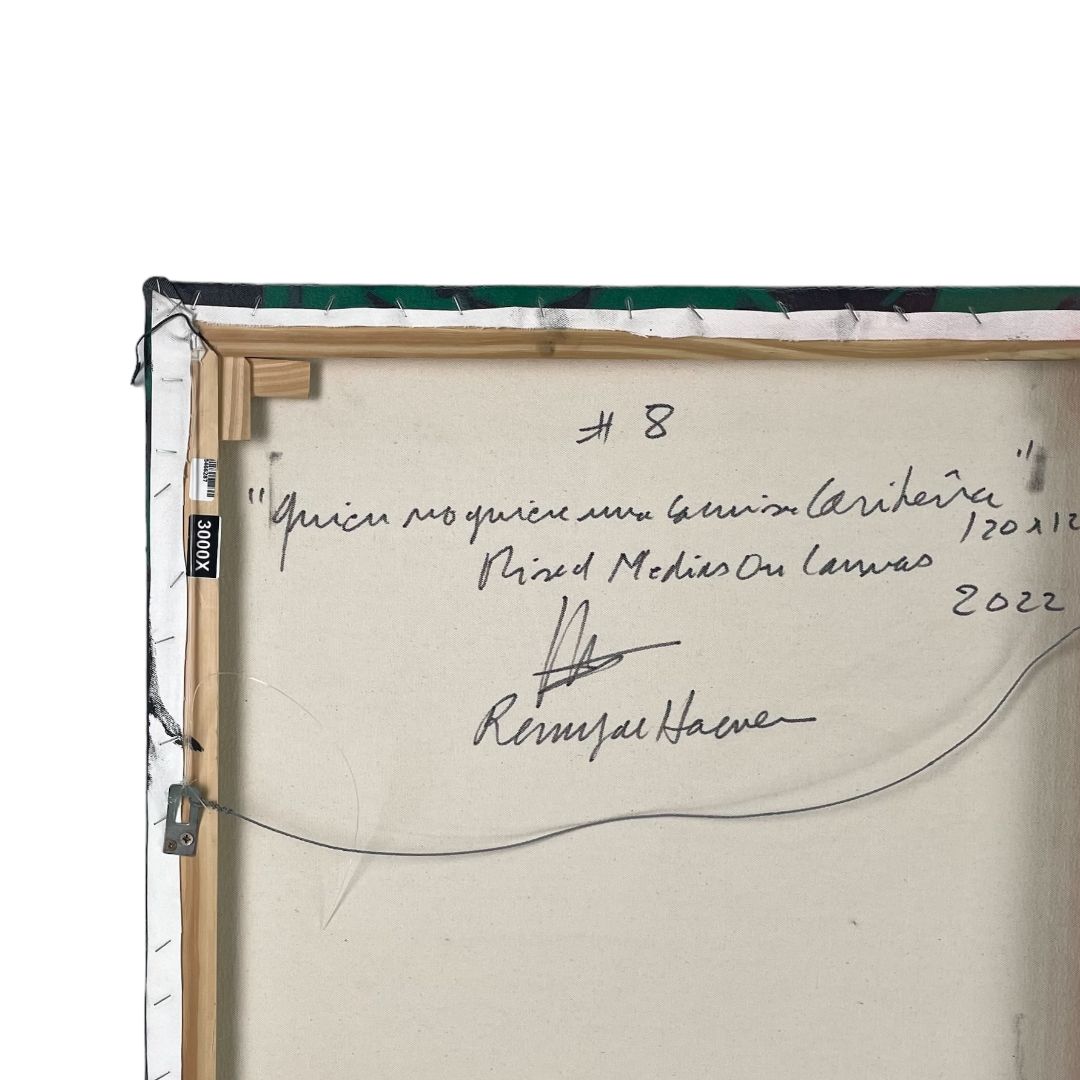 # 8
"Quien no quiere una camisa Caribeña"
120 x 12
Mixed Medias On Canvas
2022
Haenen
3000X